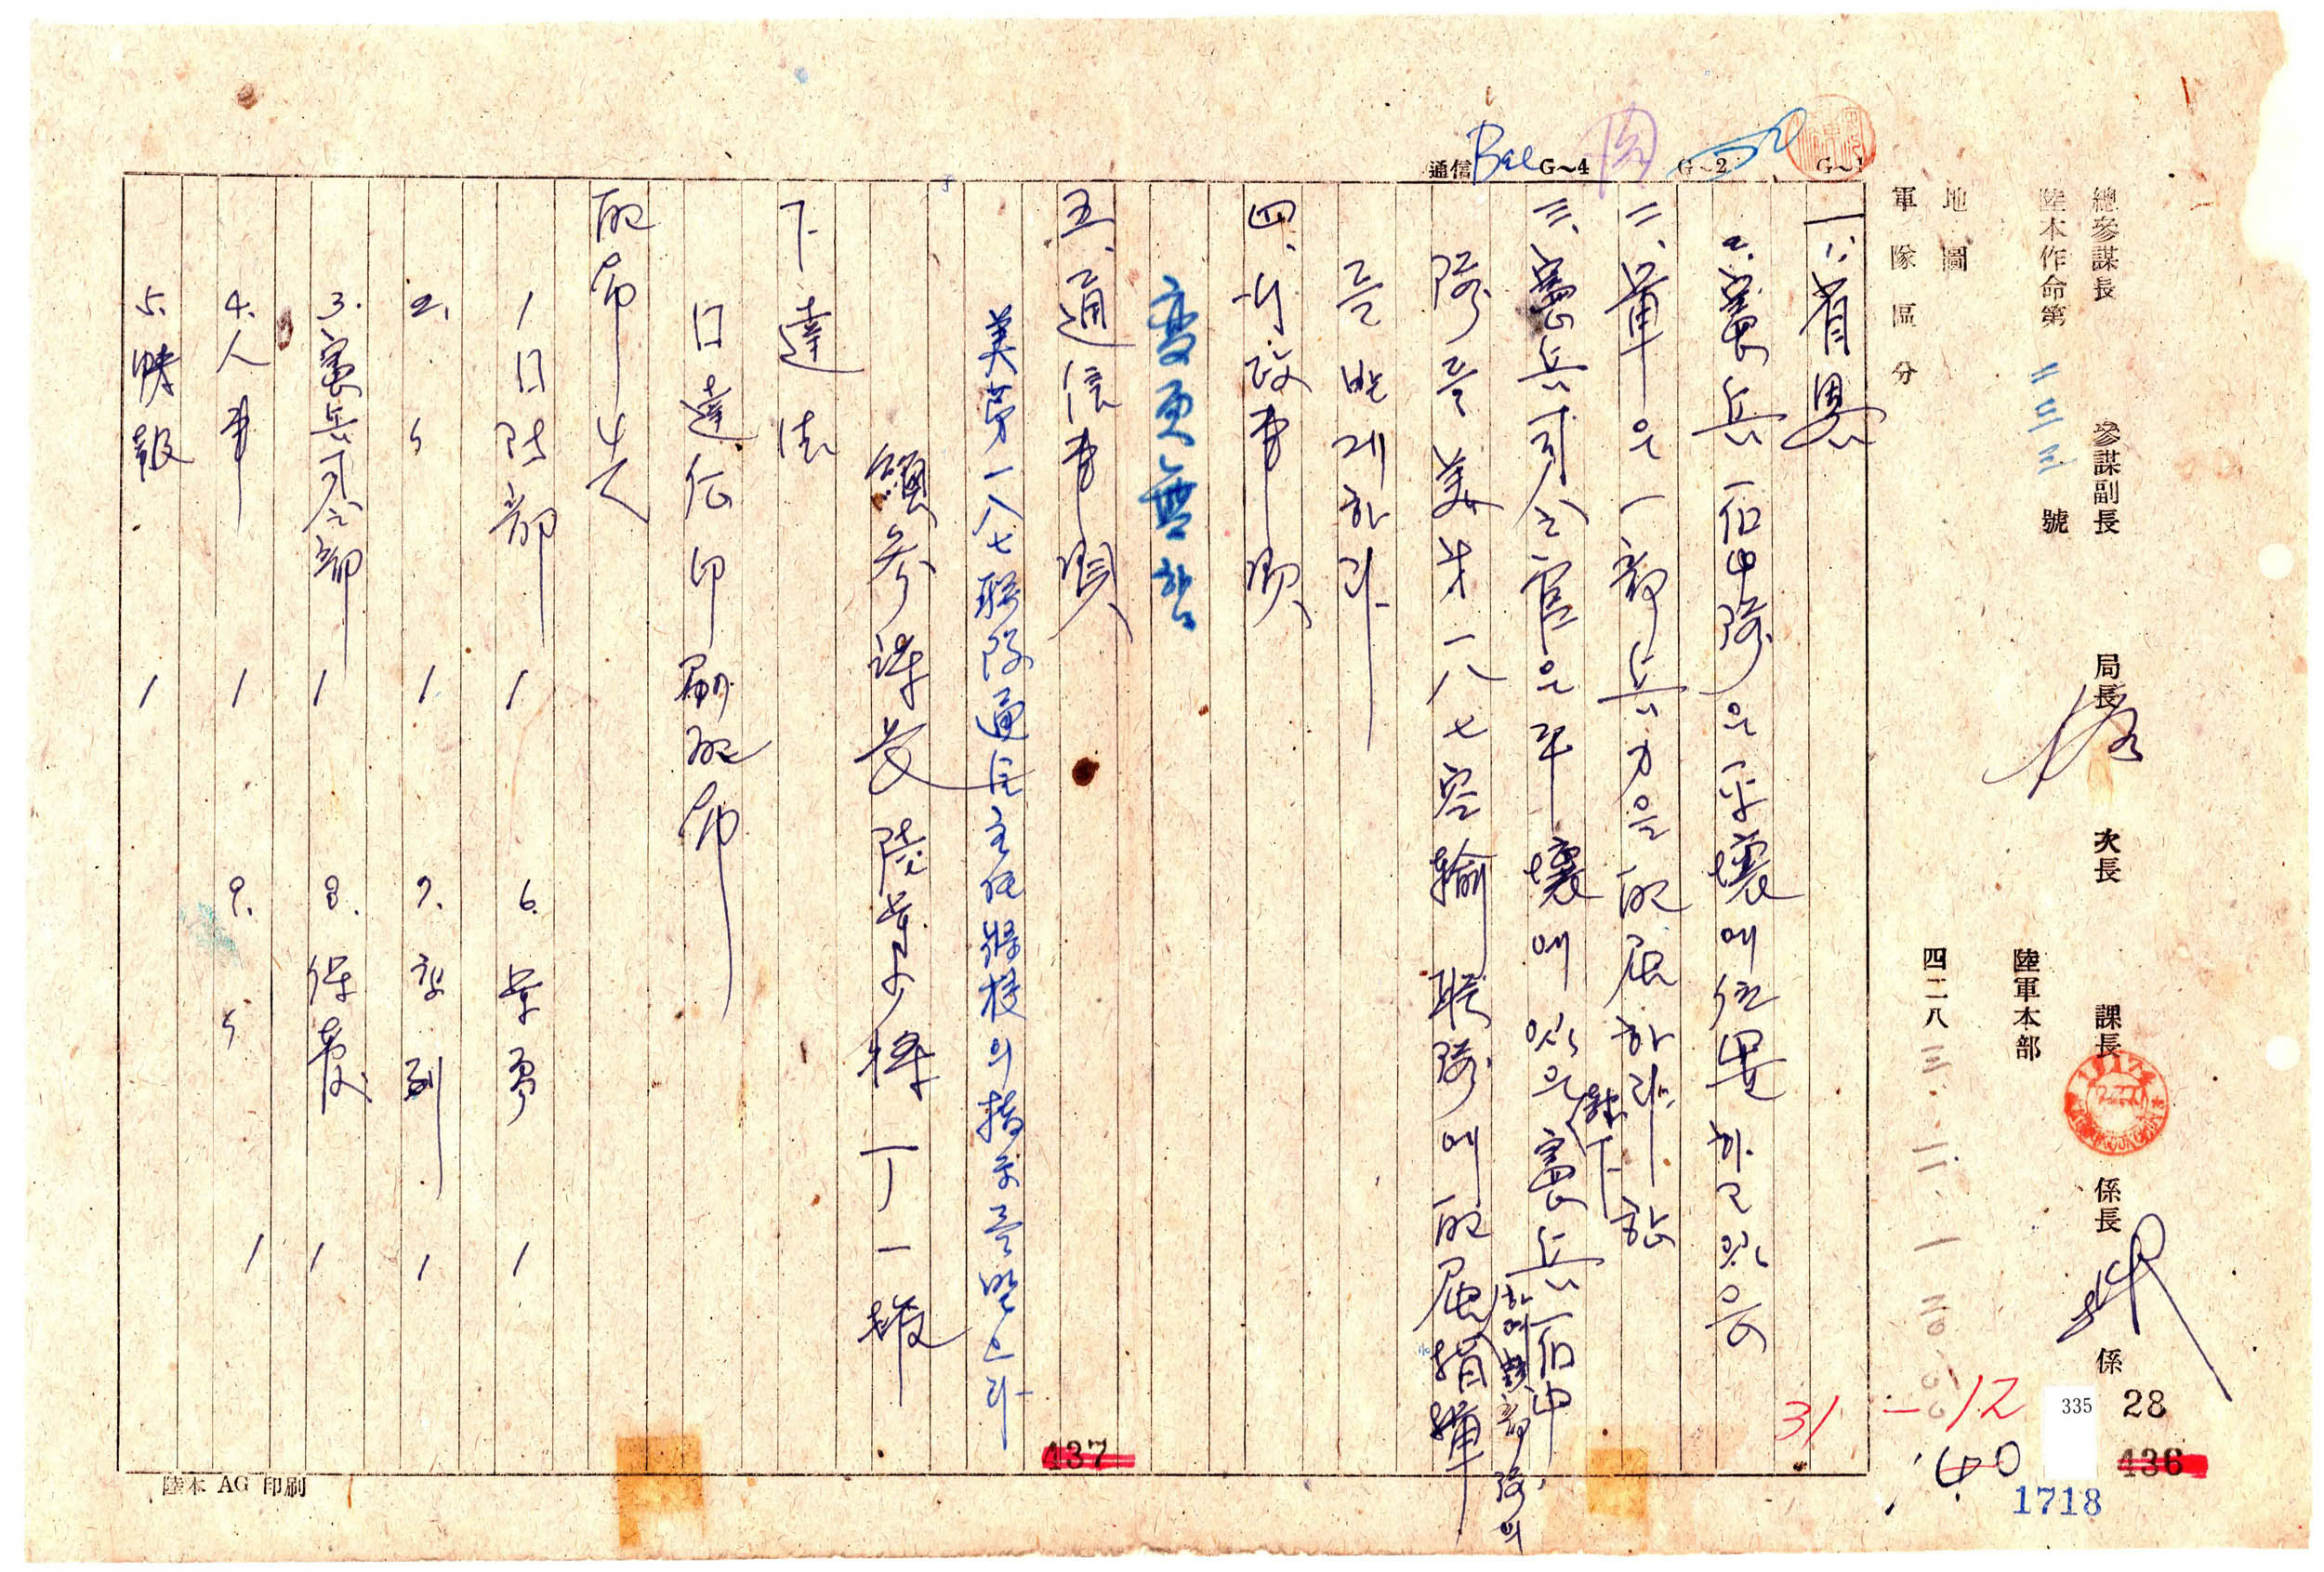 總參謀長 參謀副長 局長 次長 課長 係長 係
陸本作命第 二三三 號
陸軍本部
地圖
四二八三.一一.一 二〇:〇〇
軍隊區分
G~1
G~2
G~4
通信 Bae
一.
2. 憲兵一個中隊은 平壤에 位置하고 있음
二、軍은 一部 兵力을 配屬하려 함
三、憲兵司令官은 平壤에 있은 隷下 憲兵一個中
隊를 美第一八七空輸聯隊에 配屬하여 該部隊의 指揮
를 받게 하라
四、行政事項
變更無함
五、通信事項
美第一八七聯隊通信主任將校의 指示를 받으라
總參謀長 陸軍少將 丁一權
下達法
口達後 印刷配布
配布先
1
2. 〃 1
3. 憲兵司令部 1
4. 人事 1
5. 情報 1
6. 軍需 1
7. 1
8. 1
9. 〃 1
31
12
:40
335
28
436
1718
437
陸本 AG 印刷